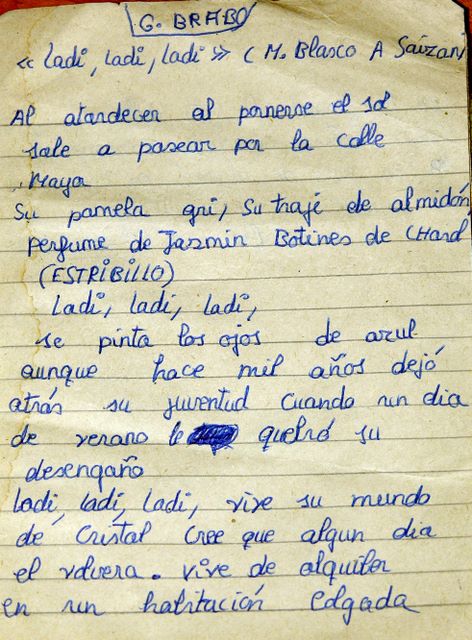 G. BRABO
« Ladi, ladi, ladi » ( M. Blasco A Saizan)
Al atardecer al ponerse el sol
sale a pasear por la calle
Mayor
Su pamela gri, su traje de almidón
perfume de Jazmin Botines de CHarol
(ESTRIBILLO)
Ladi, ladi, ladi,
se pinta los ojos de azul
aunque hace mil años dejó
atrás su juventud Cuando un dia
de verano le quebró su
desengaño
ladi, ladi, ladi, vive su mundo
de Cristal Cree que algun dia
el volvera. vive de alquiler
en un habitación Colgada